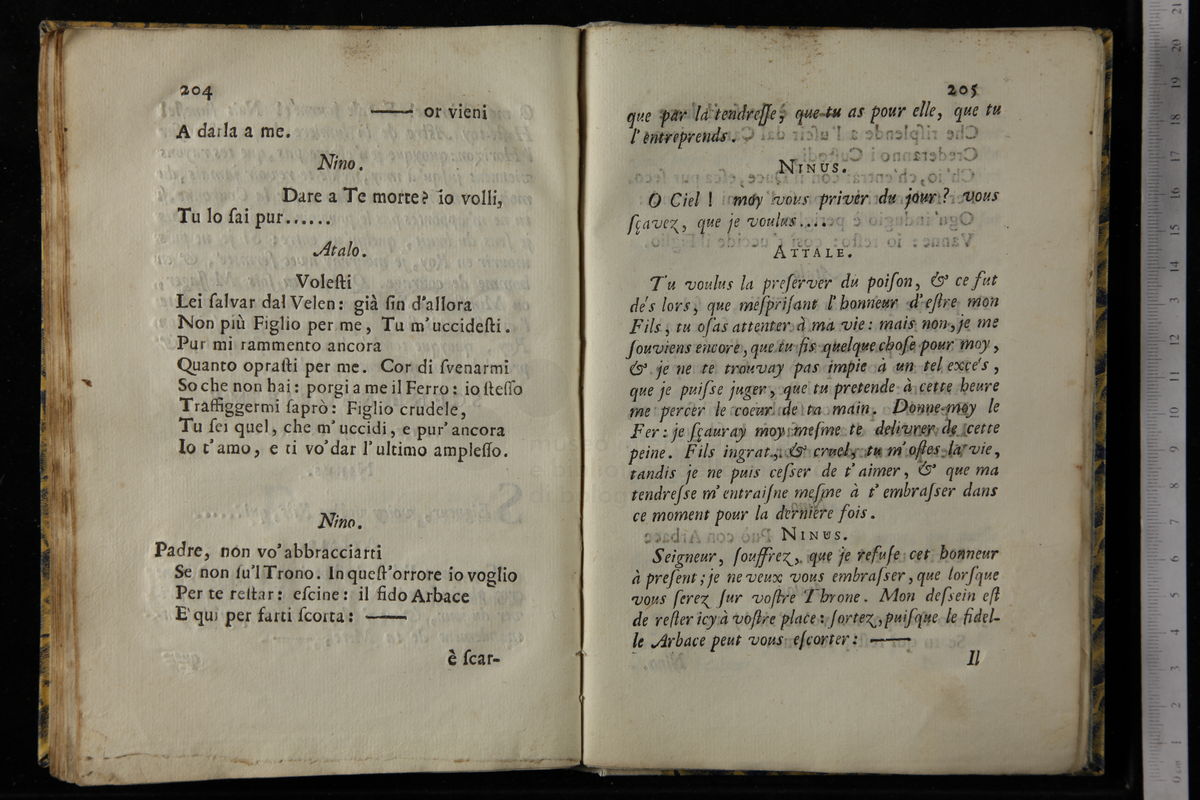 204
—— or vieni
A darla a me.
Nino.
Dare a Te morte? io volli,
Tu lo ſai pur......
Atalo.
Voleſti
Lei ſalvar dal Velen: già ſin d'allora
Non più Figlio per me, Tu m'uccideſti.
Pur mi rammento ancora
Quanto opraſti per me. Cor di ſvenarmi
So che non hai: porgi a me il Ferro: io ſteſſo
Traffiggermi ſaprò: Figlio crudele,
Tu ſei quel, che m'uccidi, e pur'ancora
Io t'amo, e ti vo'dar l'ultimo ampleſſo.
Nino.
Padre, non vo'abbracciarti
Se non ſu'l Trono. In queſt'orrore io voglio
Per te reſtar: eſcine: il fido Arbace
E' qui per farti ſcorta: ——
è ſcar-
205
que par la tendreſſe, que tu as pour elle, que tu
l'entreprends.
NINUS.
O Ciel! moy vous priver du jour? vous
ſçavez, que je voulus....
ATTALE.
Tu voulus la preſerver du poiſon, & ce fut
dés lors, que mépriſant l'honneur d'eſtre mon
Fils, tu oſas attenter à ma vie: mais non, je me
ſouviens encore, que tu fis quelque choſe pour moy,
& je ne te trouvay pas impie à un tel excés,
que je puiſse juger, que tu pretende à cette heure
me percer le coeur de ta main. Donne-moy le
Fer: je ſçauray moy meſme te delivrer de cette
peine. Fils ingrat, & cruel, tu m'oſtes la vie,
tandis je ne puis ceſser de t'aimer, & que ma
tendreſse m'entraiſne meſme à t'embraſser dans
ce moment pour la derniere fois.
NINUS.
Seigneur, ſouffrez, que je refuſe cet honneur
à preſent; je ne veux vous embraſser, que lorſque
vous ſerez ſur voſtre Throne. Mon deſsein eſt
de reſter icy à voſtre place: ſortez, puiſque le fidel-
le Arbace peut vous eſcorter: ——
Il